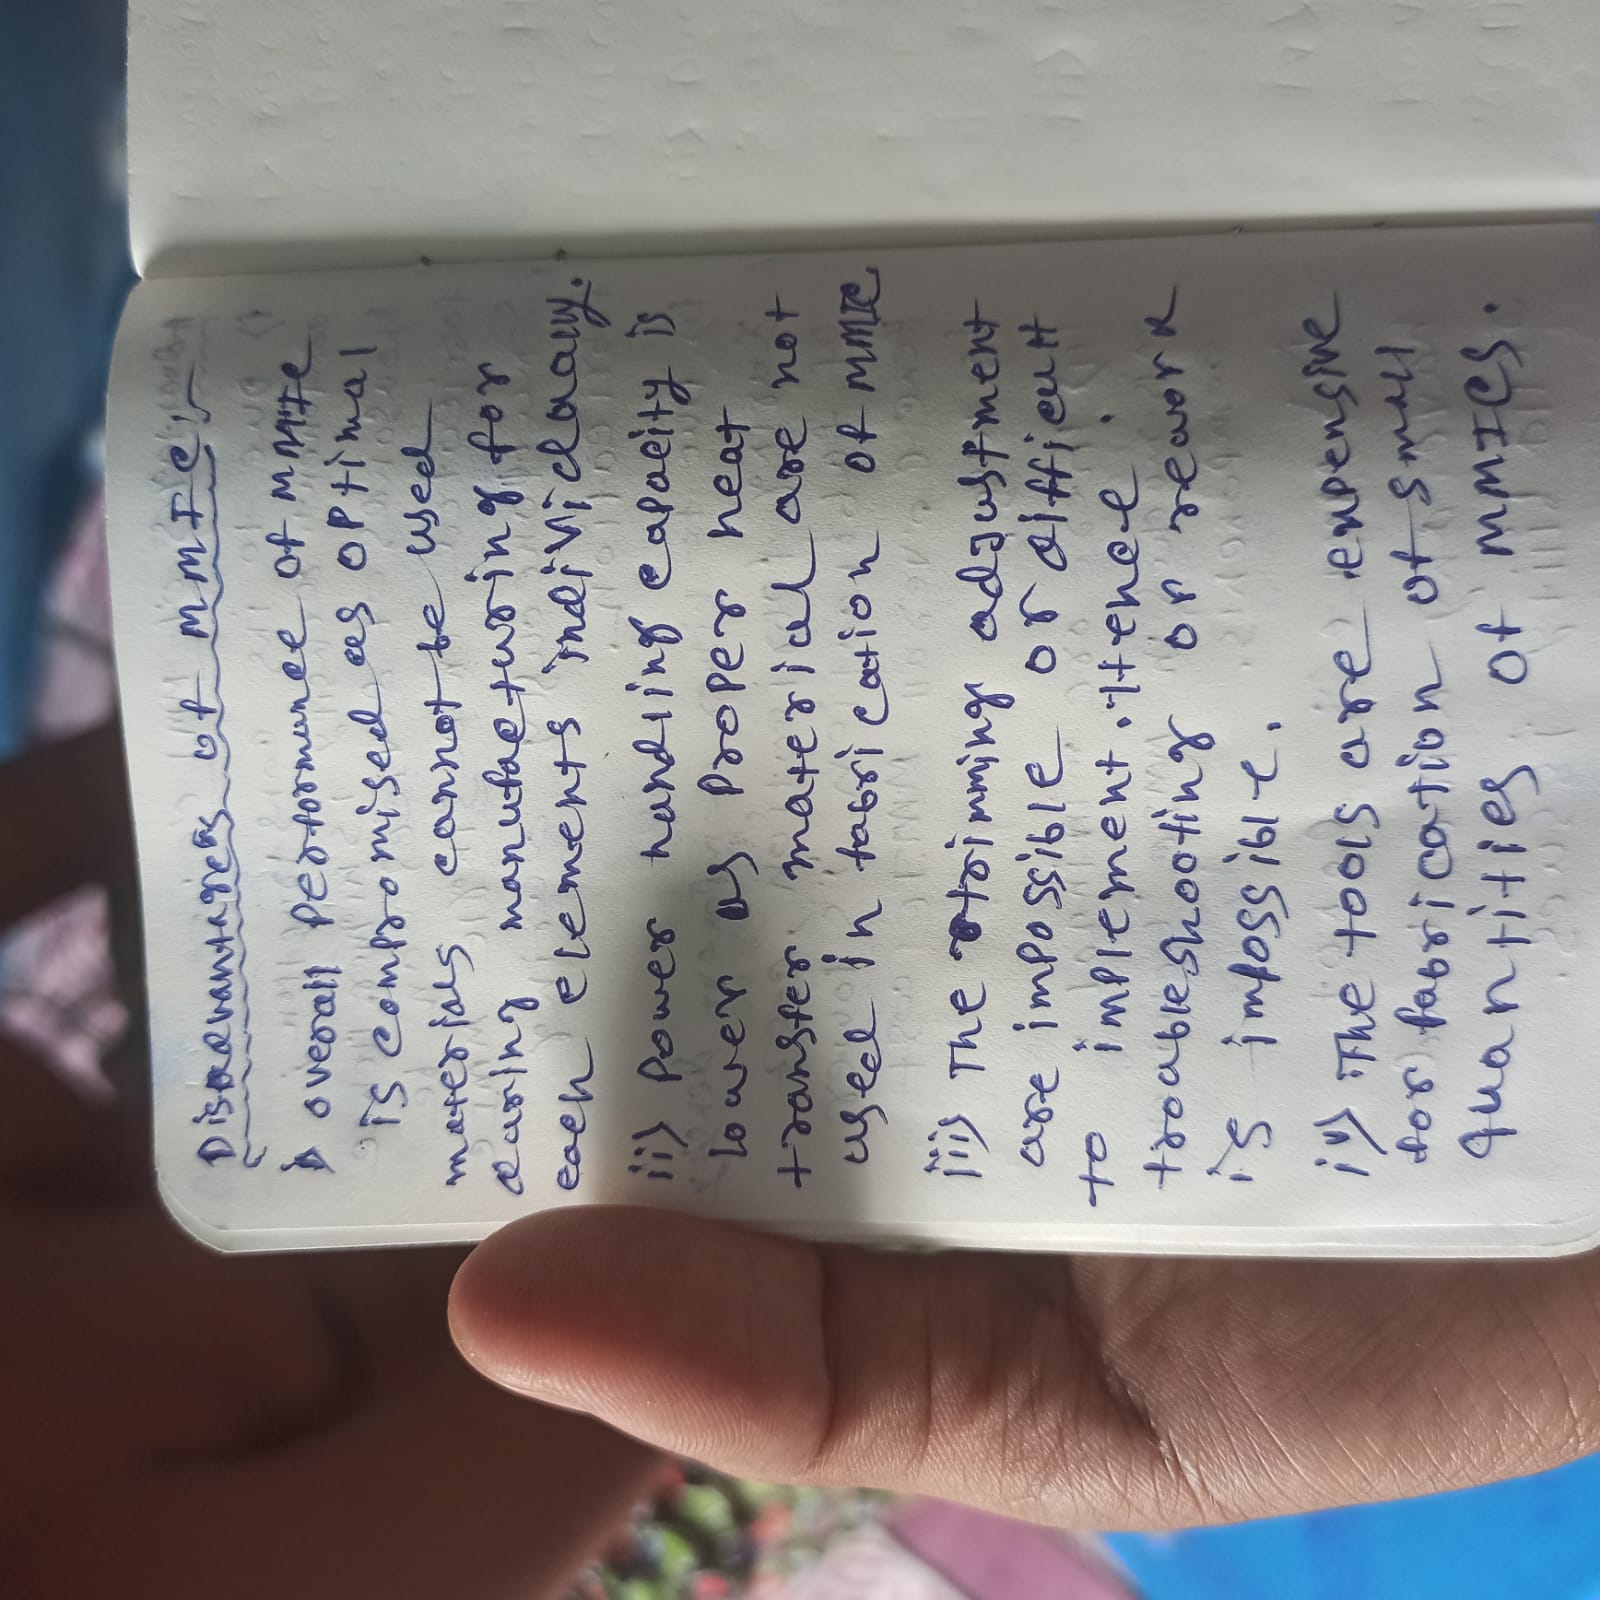 Disadvantages of MMIC:-
i) overall performance of MMIC
is compromised as optimal
materials cannot be used
during manufacturing for
each elements individually.
ii) Power handling capacity is
lower as proper heat
transfer material are not
used in fabrication of MMIC
iii) The trimming adjustment
are impossible or difficult
to implement. Hence
troubleshooting or rework
is impossible.
iv) The tools are expensive
for fabrication of small
quantities of MMICs.